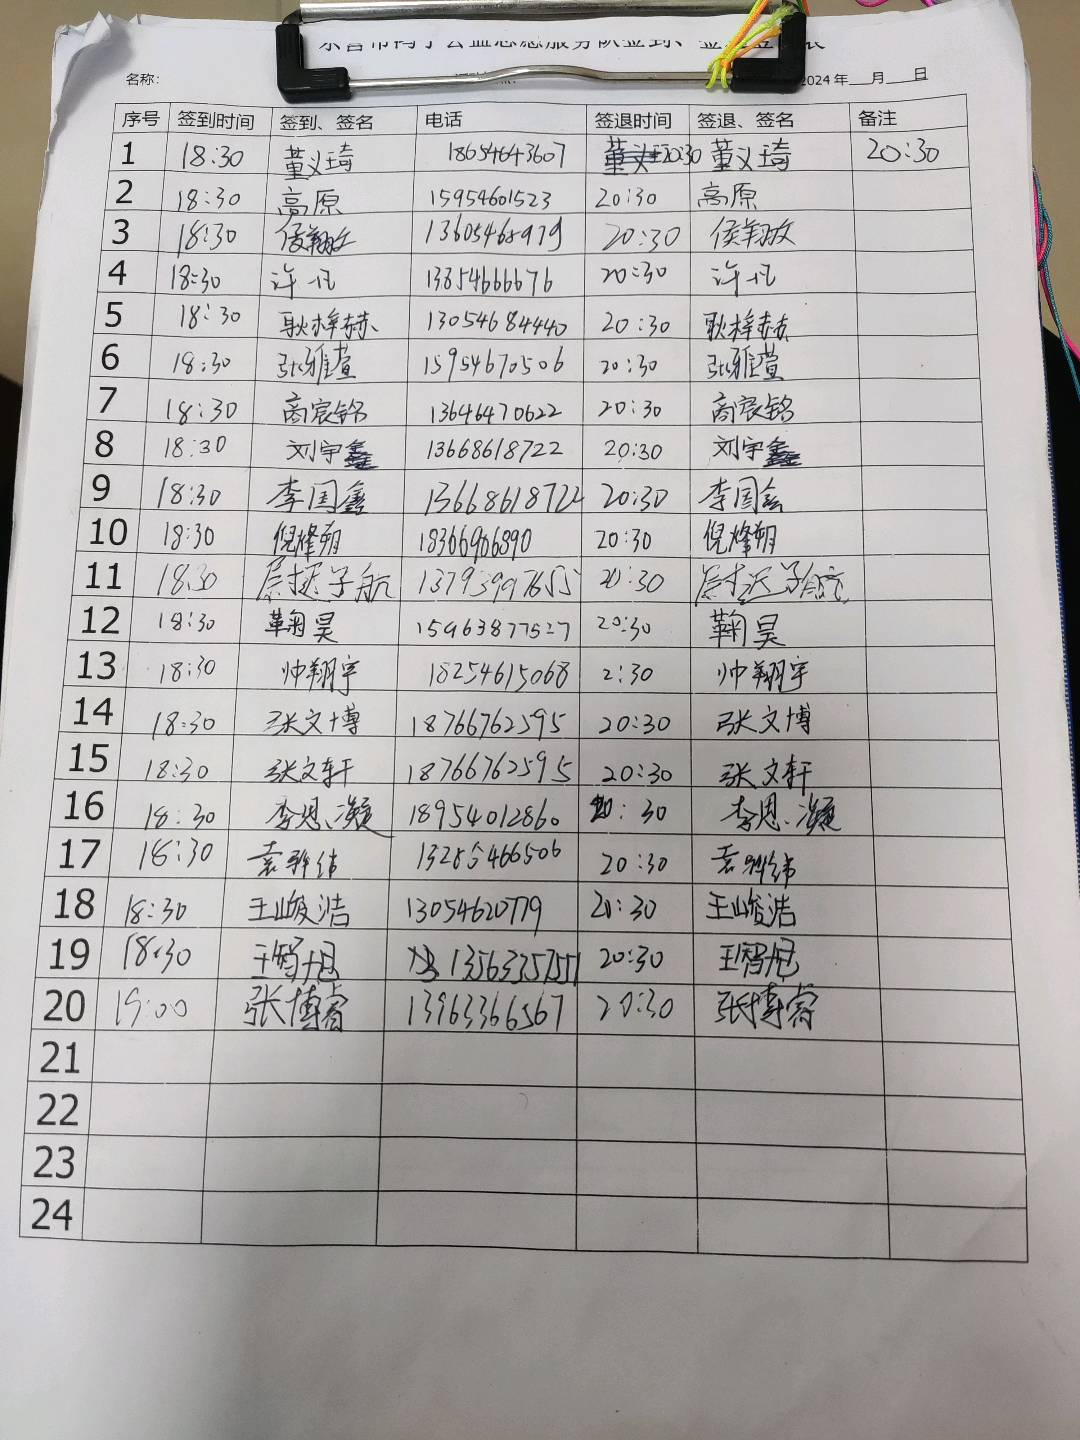 服务队签到、
名称: 2024 年 月 日
序号 签到时间 签到、签名 电话 签退时间 签退、签名 备注
1 18:30 董义琦 18654643607 20:30 董义琦 20:30
2 18:30 高原 15954601523 20:30 高原
3 18:30 侯翔 20:30 侯翔
4 18:30 许凡 13854666676 20:30 许凡
5 18:30 耿梓赫 13054684440 20:30 耿梓赫
6 18:30 张雅萱 15954670506 20:30 张雅萱
7 18:30 商宸铭 13646470622 20:30 商宸铭
8 18:30 刘宇鑫 13668618722 20:30 刘宇鑫
9 18:30 李国鑫 13668618722 20:30 李国鑫
10 18:30 倪烽朔 18366966890 20:30 倪烽朔
11 18:30 尉迟子航 13793997655 20:30 尉迟子航
12 18:30 鞠昊 15963877527 20:30 鞠昊
13 18:30 帅翔宇 18254615068 2:30 帅翔宇
14 18:30 张文博 18766762595 20:30 张文博
15 18:30 张文轩 18766762595 20:30 张文轩
16 18:30 李恩凝 18954012860 20:30 李恩凝
17 18:30 袁骅纬 13285466506 20:30 袁骅纬
18 18:30 王峻浩 13054620779 20:30 王峻浩
19 18:30 王智旭 13563357551 20:30 王智旭
20 19:00 张博睿 13963366567 20:30 张博睿
21
22
23
24